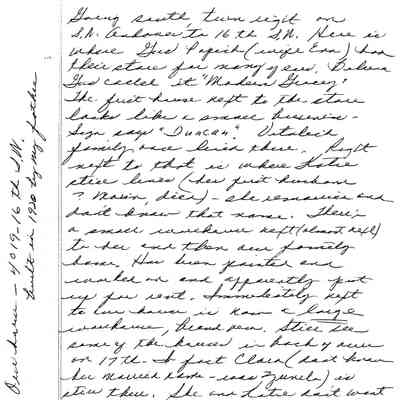 Going south, turn right on
S.W. Andover to 16th S.W. Here is
where Gus Papish (wife Enn) had
their store for many years. Believe
Gus called it "Modern Grocery"
The first house next to the store
looks like a small business -
Sign says "Duncan". Vitalich
family once lived there. Right
next to that is where Katie
still lives (her first husband
? Marin, died) - she remarried and
don't know that name. There is
a small warehouse next (almost next)
to her and then our family
home. Has been painted and
worked on and apparently put
up for rent. Immediately next
to our house is now a large
warehouse, brand new. Still see
some of the houses in back of ours
on 17th. In fact Clara (don't know
her married name - was Zuvela) is
still there. She and Katie don't want
Our house - 4019-16th S.W.
built in 1920 by my father